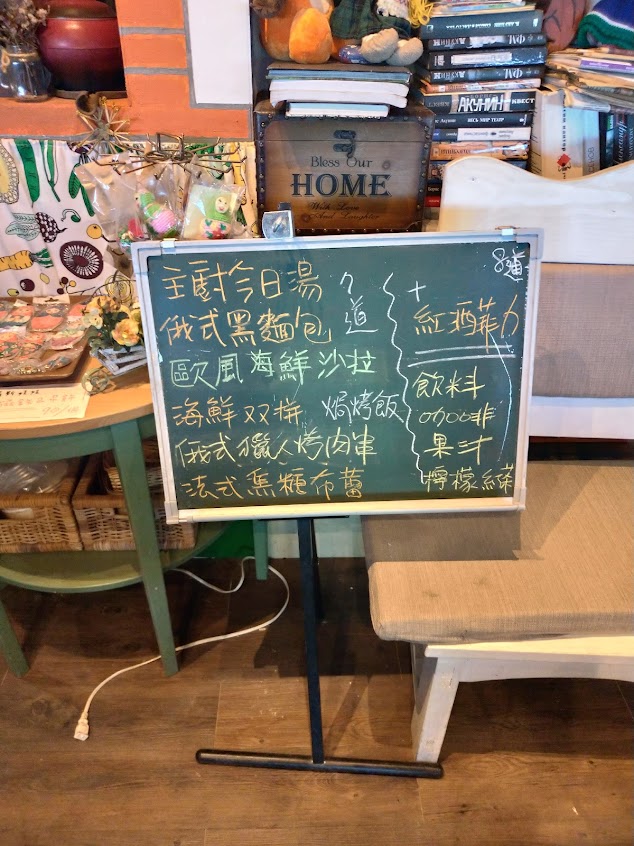 Bless Our
HOME
With Love
And Laughter
АКУНИН
АКУНИН КВЕСТ
主廚今日湯
俄式黑麵包
歐風海鮮沙拉
海鮮双拼 焗烤飯
俄式獵人烤肉串
法式焦糖布蕾
道
8道
+
紅酒菲力
飲料
咖啡
果汁
檸檬綠茶